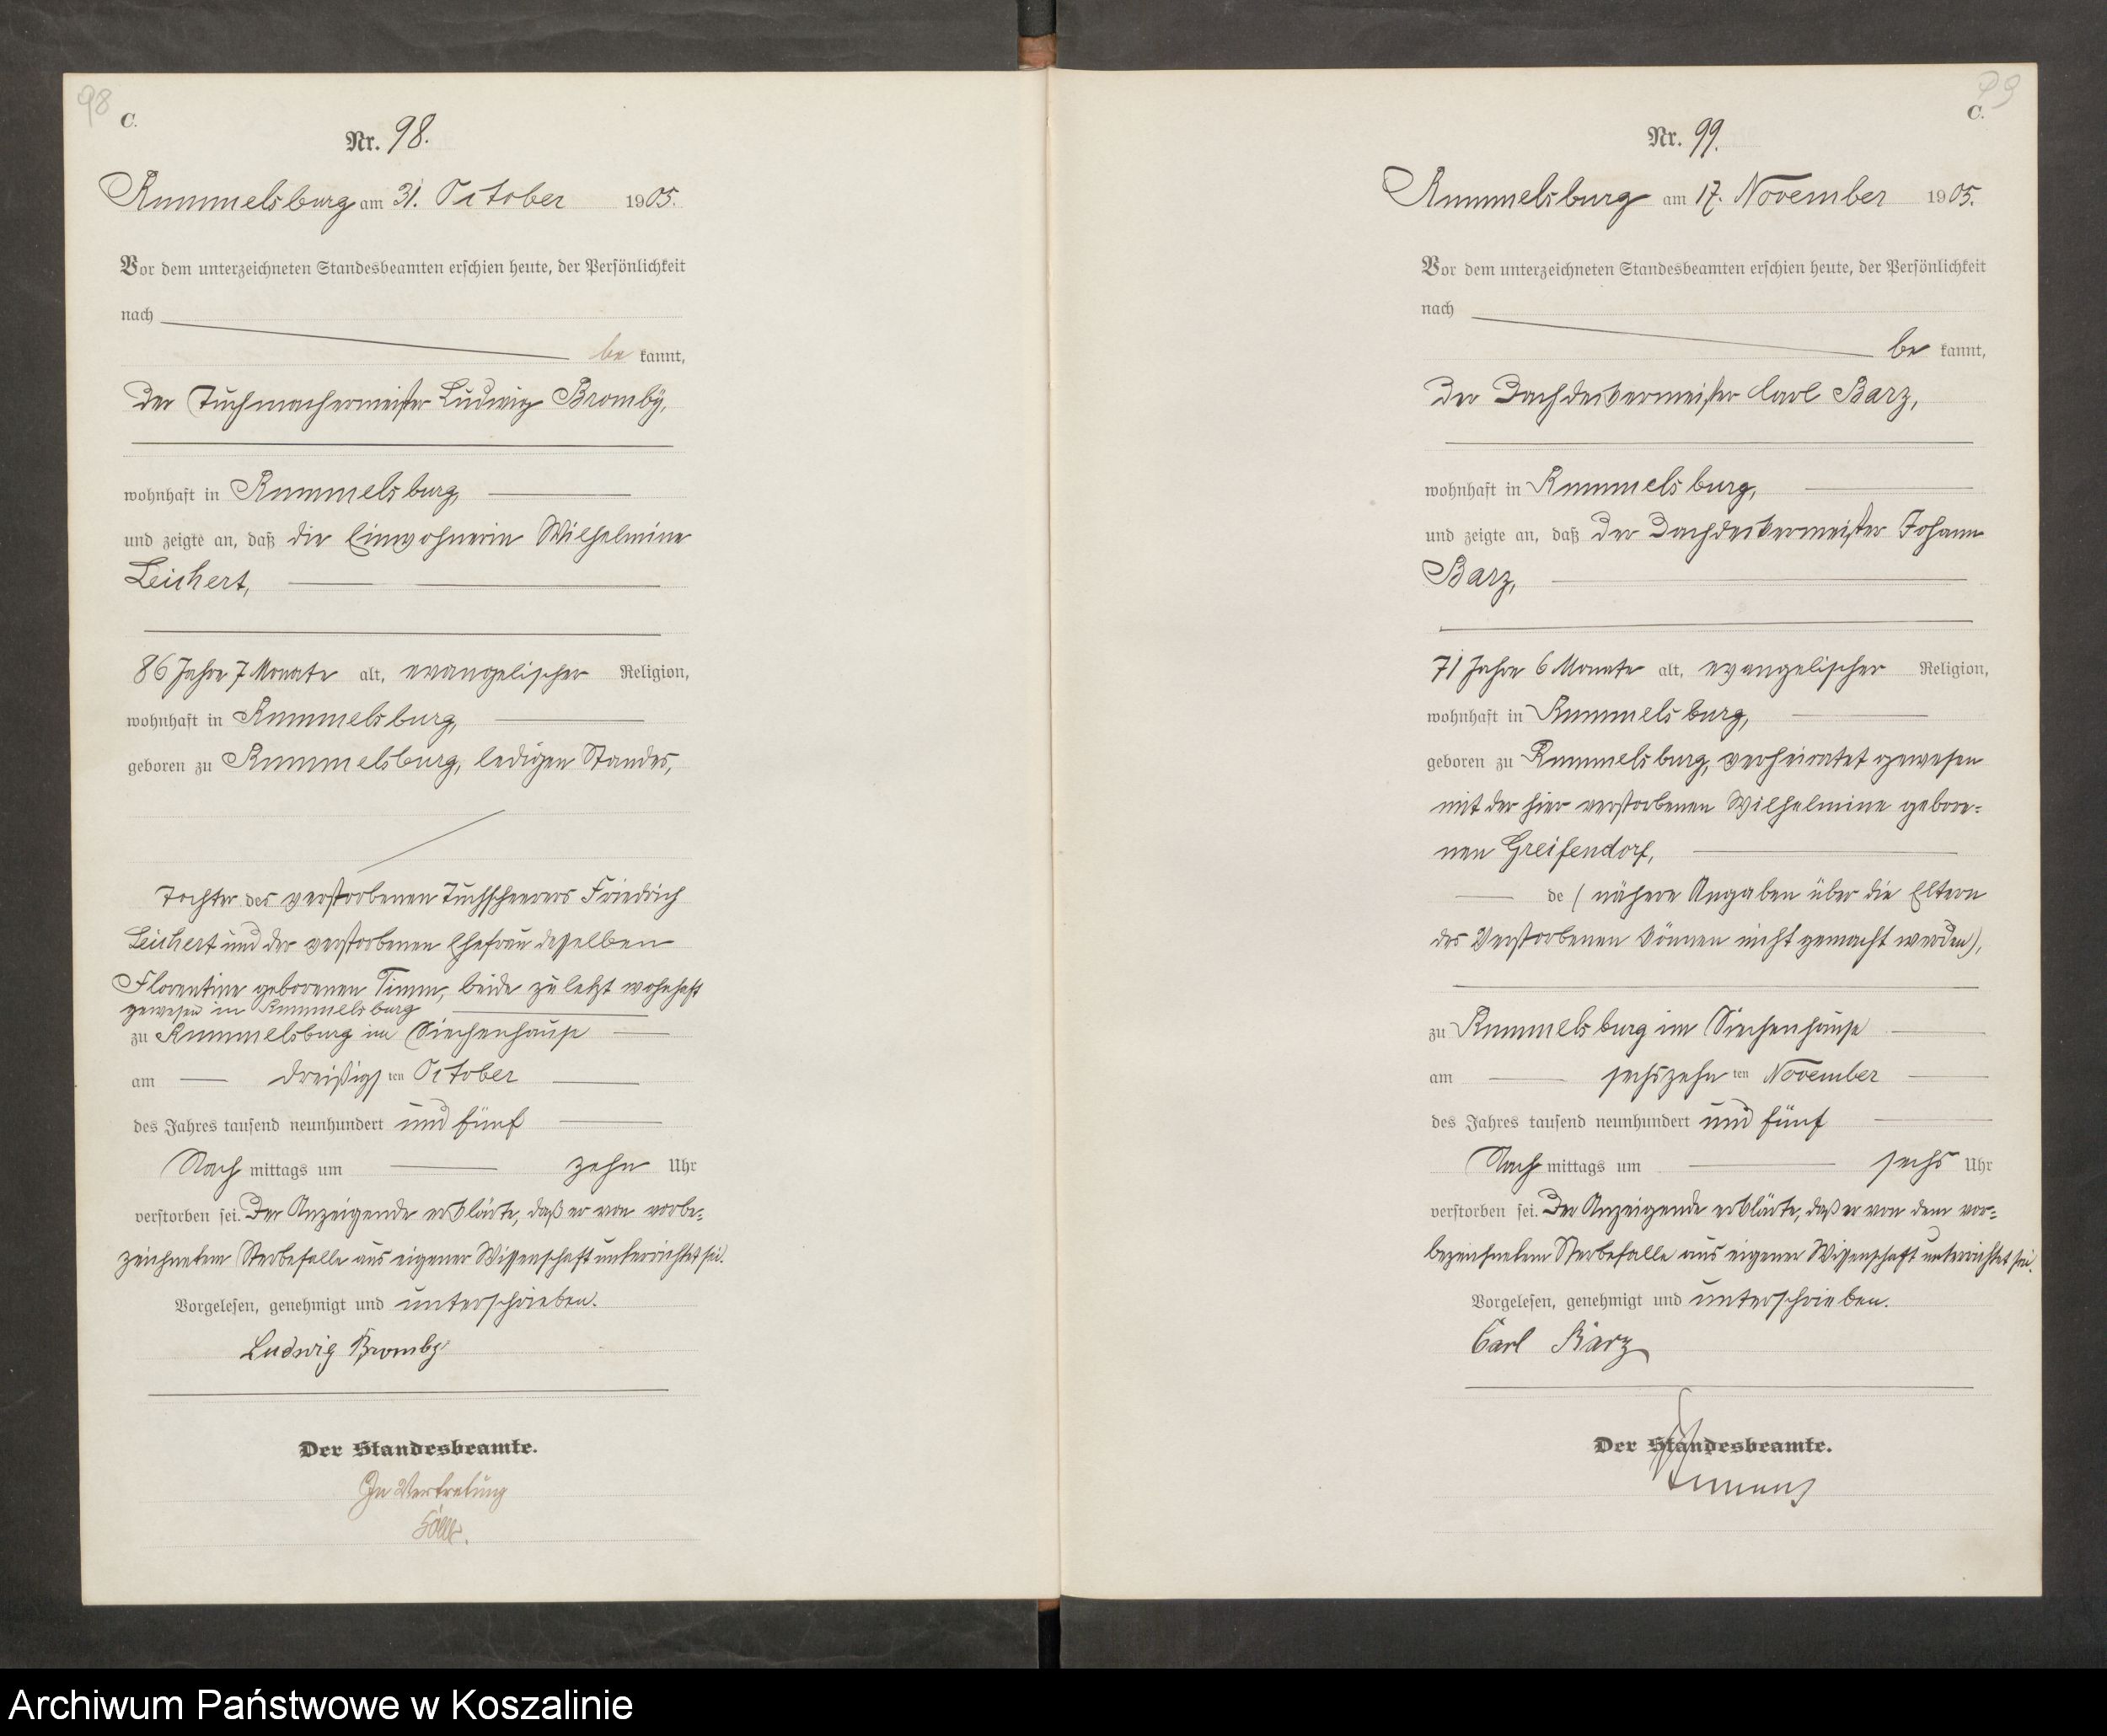 98
C.
Nr. 98.
Rummelsburg am 31. October 1905.
Vor dem unterzeichneten Standesbeamten erschien heute, der Persönlichkeit
nach
be kannt,
der Tuchmachermeister Ludwig Bromby,
wohnhaft in Rummelsburg,
und zeigte an, daß die Einwohnerin Wilhelmine
Leichert,
86 Jahre 7 Monate alt, evangelischer Religion,
wohnhaft in Rummelsburg,
geboren zu Rummelsburg, ledigen Standes,
Tochter des verstorbenen Tuchscheerers Friedrich
Leichert und der verstorbenen Ehefrau desselben
Florentine geborenen Timm, beide zuletzt wohnhaft
gewesen in Rummelsburg
zu Rummelsburg im Siechenhause
am dreißigs ten October
des Jahres tausend neunhundert und fünf
Nach mittags um zehn Uhr
verstorben sei. Der Anzeigende erklärte, daß er von vorbe-
zeichnetem Sterbefalle aus eigener Wissenschaft unterrichtet sei.
Vorgelesen, genehmigt und unterschrieben.
Ludwig Bromby
Der Standesbeamte.
In Vertretung
99
C.
Nr. 99.
Rummelsburg am 17. November 1905.
Vor dem unterzeichneten Standesbeamten erschien heute, der Persönlichkeit
nach
be kannt,
der Dachdeckermeister Carl Barz,
wohnhaft in Rummelsburg,
und zeigte an, daß der Dachdeckermeister Johann
Barz,
71 Jahre 6 Monate alt, evangelischer Religion,
wohnhaft in Rummelsburg,
geboren zu Rummelsburg, verheiratet gewesen
mit der hier verstorbenen Wilhelmine gebore-
nen Greifendorf,
de (nähere Angaben über die Eltern
des Verstorbenen können nicht gemacht werden),
zu Rummelsburg im Siechenhause
am sechszehn ten November
des Jahres tausend neunhundert und fünf
Nach mittags um sechs Uhr
verstorben sei. Der Anzeigende erklärte, daß er von dem vor-
bezeichnetem Sterbefalle aus eigener Wissenschaft unterrichtet sei.
Vorgelesen, genehmigt und unterschrieben.
Carl Barz
Der Standesbeamte.
Archiwum Państwowe w Koszalinie